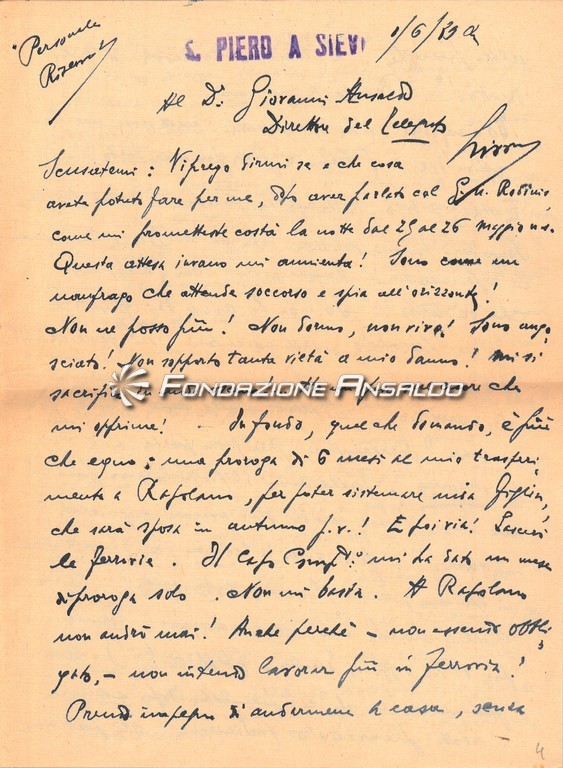 "Personale
Riservata"
S. PIERO A SIEVE
1/6/39
Al Dr. Giovanni Ansaldo
Direttore del Telegrafo
Livorno
Scusatemi: Vi prego dirmi se e che cosa
avete potuto fare per me, dopo aver parlato col
come mi prometteste costà la notte dal 25 al 26 maggio u.s.
Questa attesa invano mi annienta! Sono come un
naufrago che attende soccorso e spia all'orizzonte!
Non ne posso più! Non dormo, non vivo! Sono ango
sciato! Non sopporto tanta viltà a mio danno! Mi si
sacrifica che
FONDAZIONE ANSALDO
mi opprime! - In fondo, quel che domando, è più
che equo: una proroga di 6 mesi al mio trasferi
mento a Rapolano, per poter sistemare mia figlia,
che sarà sposa in autunno p.v.! E poi via! Lascerò
le Ferrovie. Il Capo mi ha dato un mese
di proroga solo. Non mi basta. A Rapolano
non andrò mai! Anche perché - non essendo obbli
gato, - non intendo lavorar più in Ferrovia!
Prendo impegno di andarmene a casa, senza
4